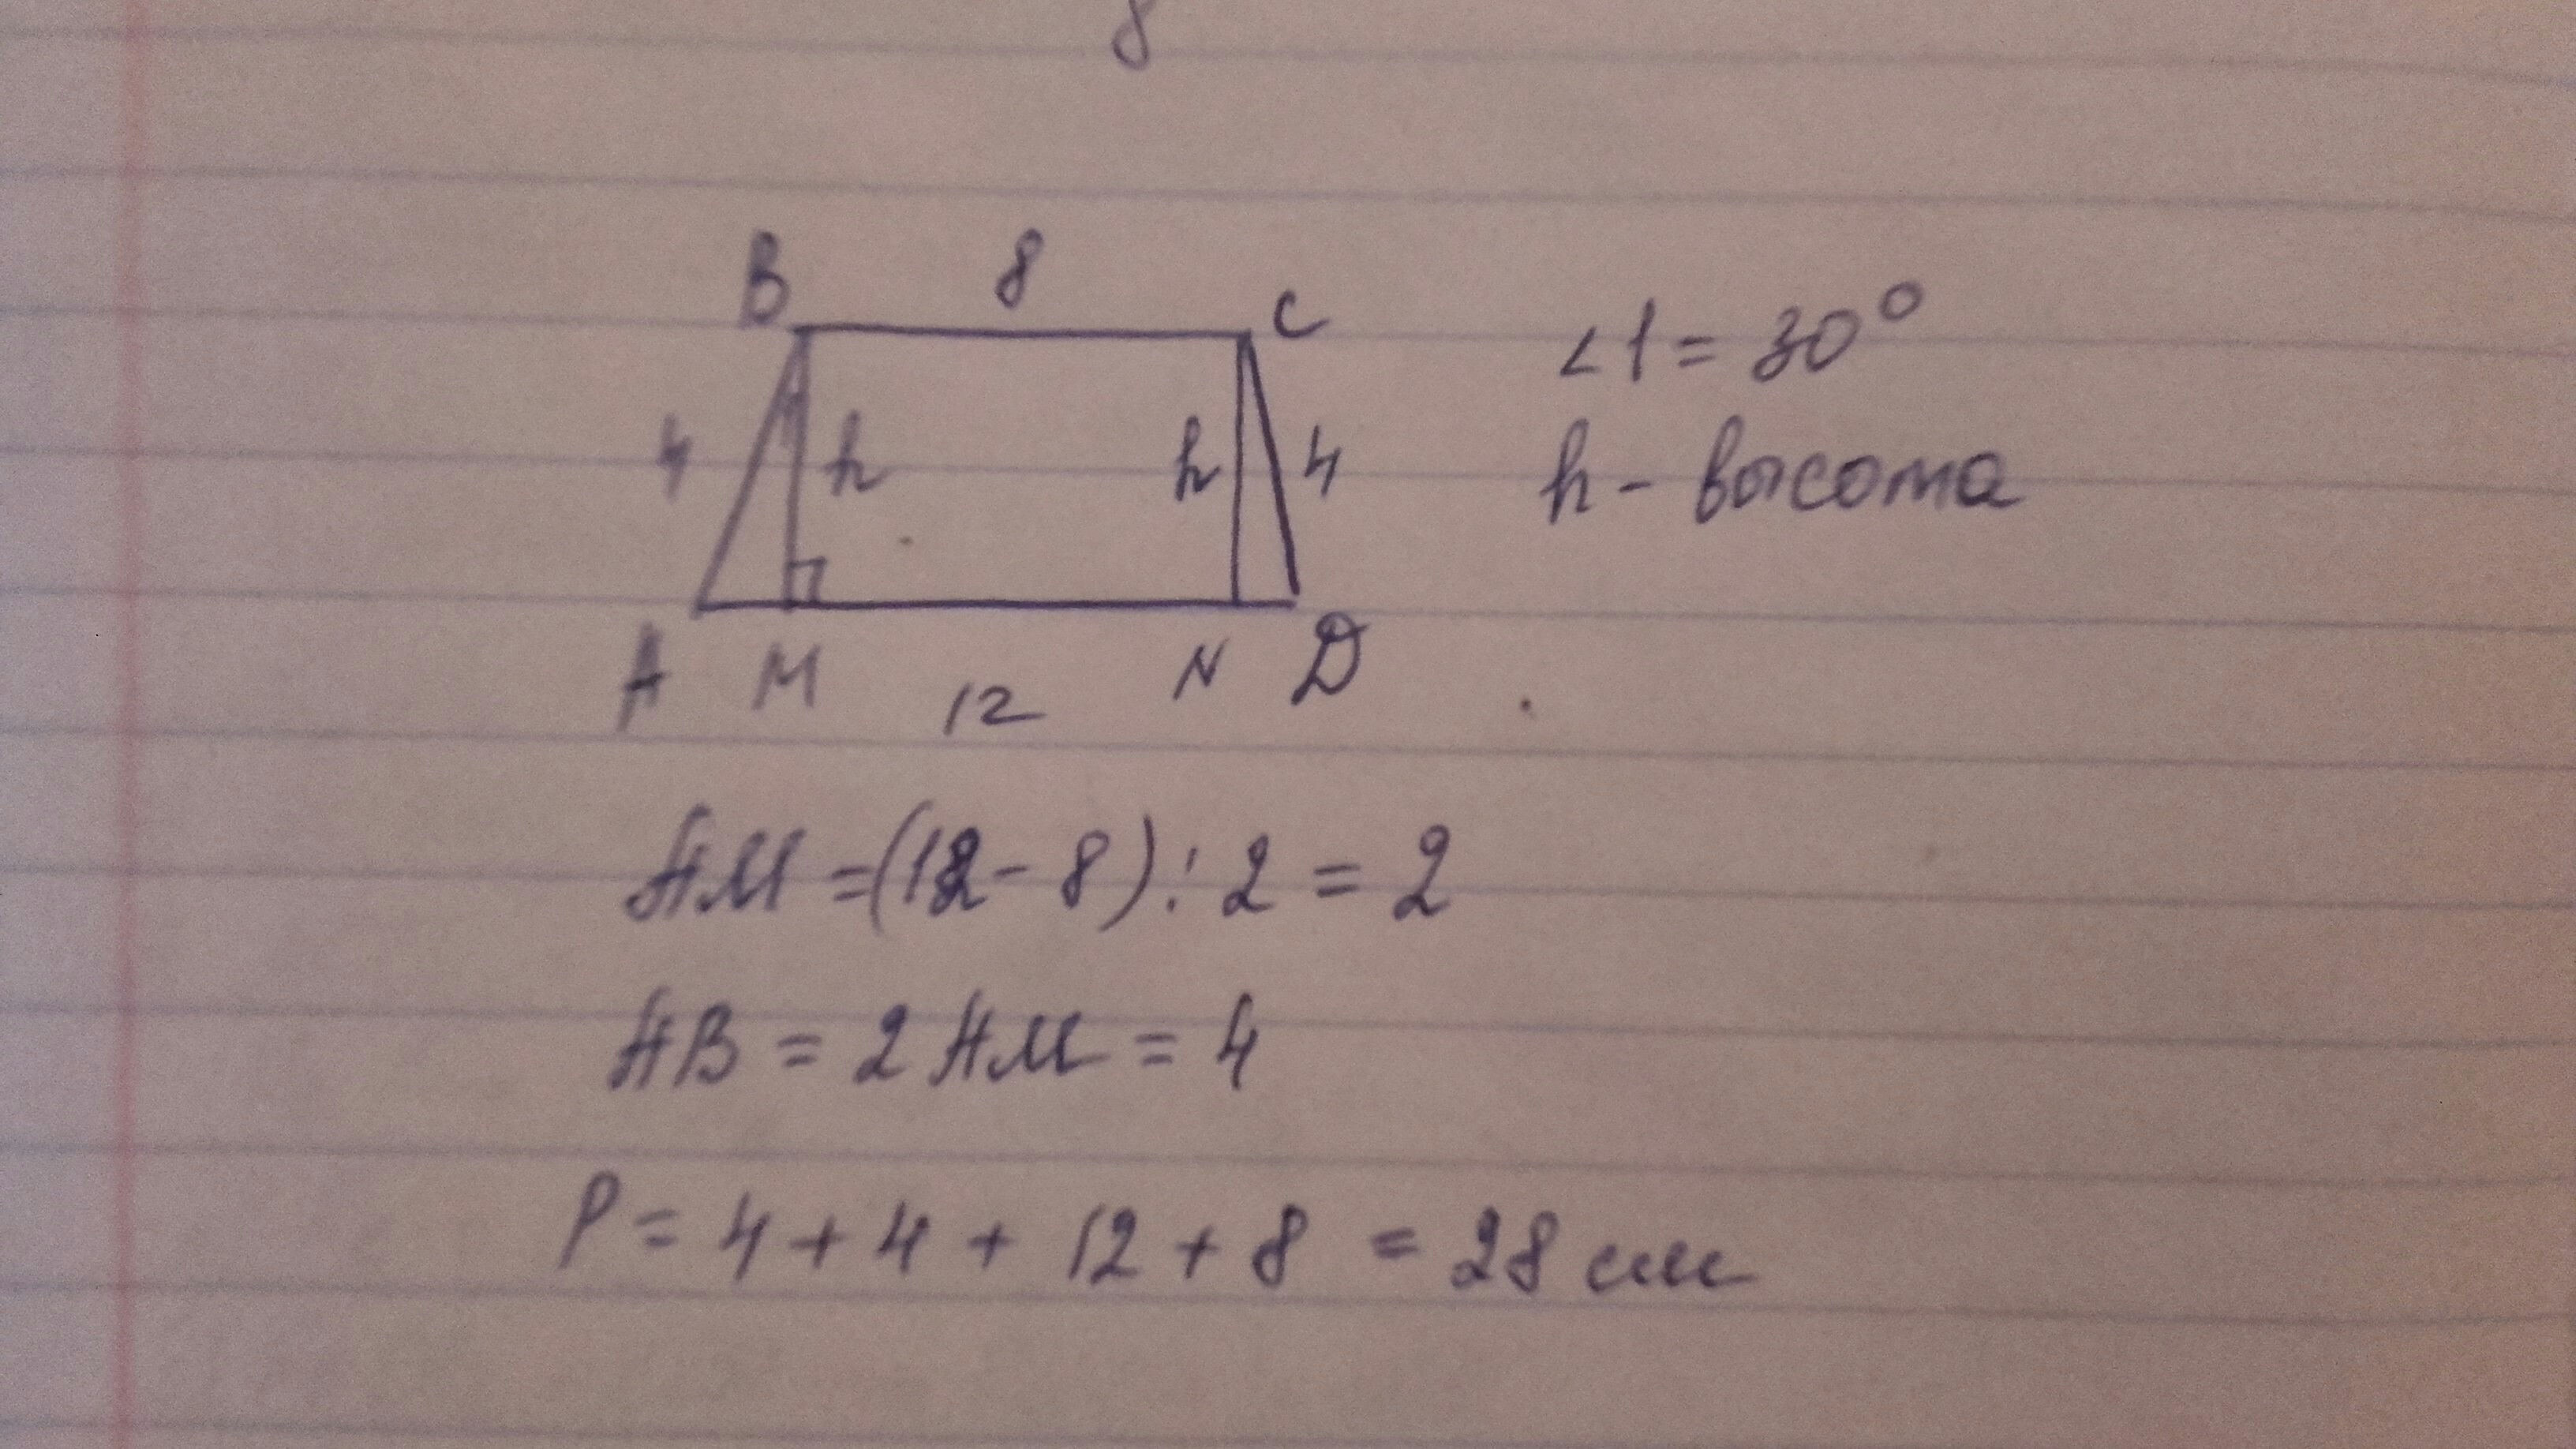 8
B 8 C
∠1 = 30°
4 h h 4
h - высота
A M 12 N D
AM = (12 - 8) : 2 = 2
AB = 2 AM = 4
P = 4 + 4 + 12 + 8 = 28 см